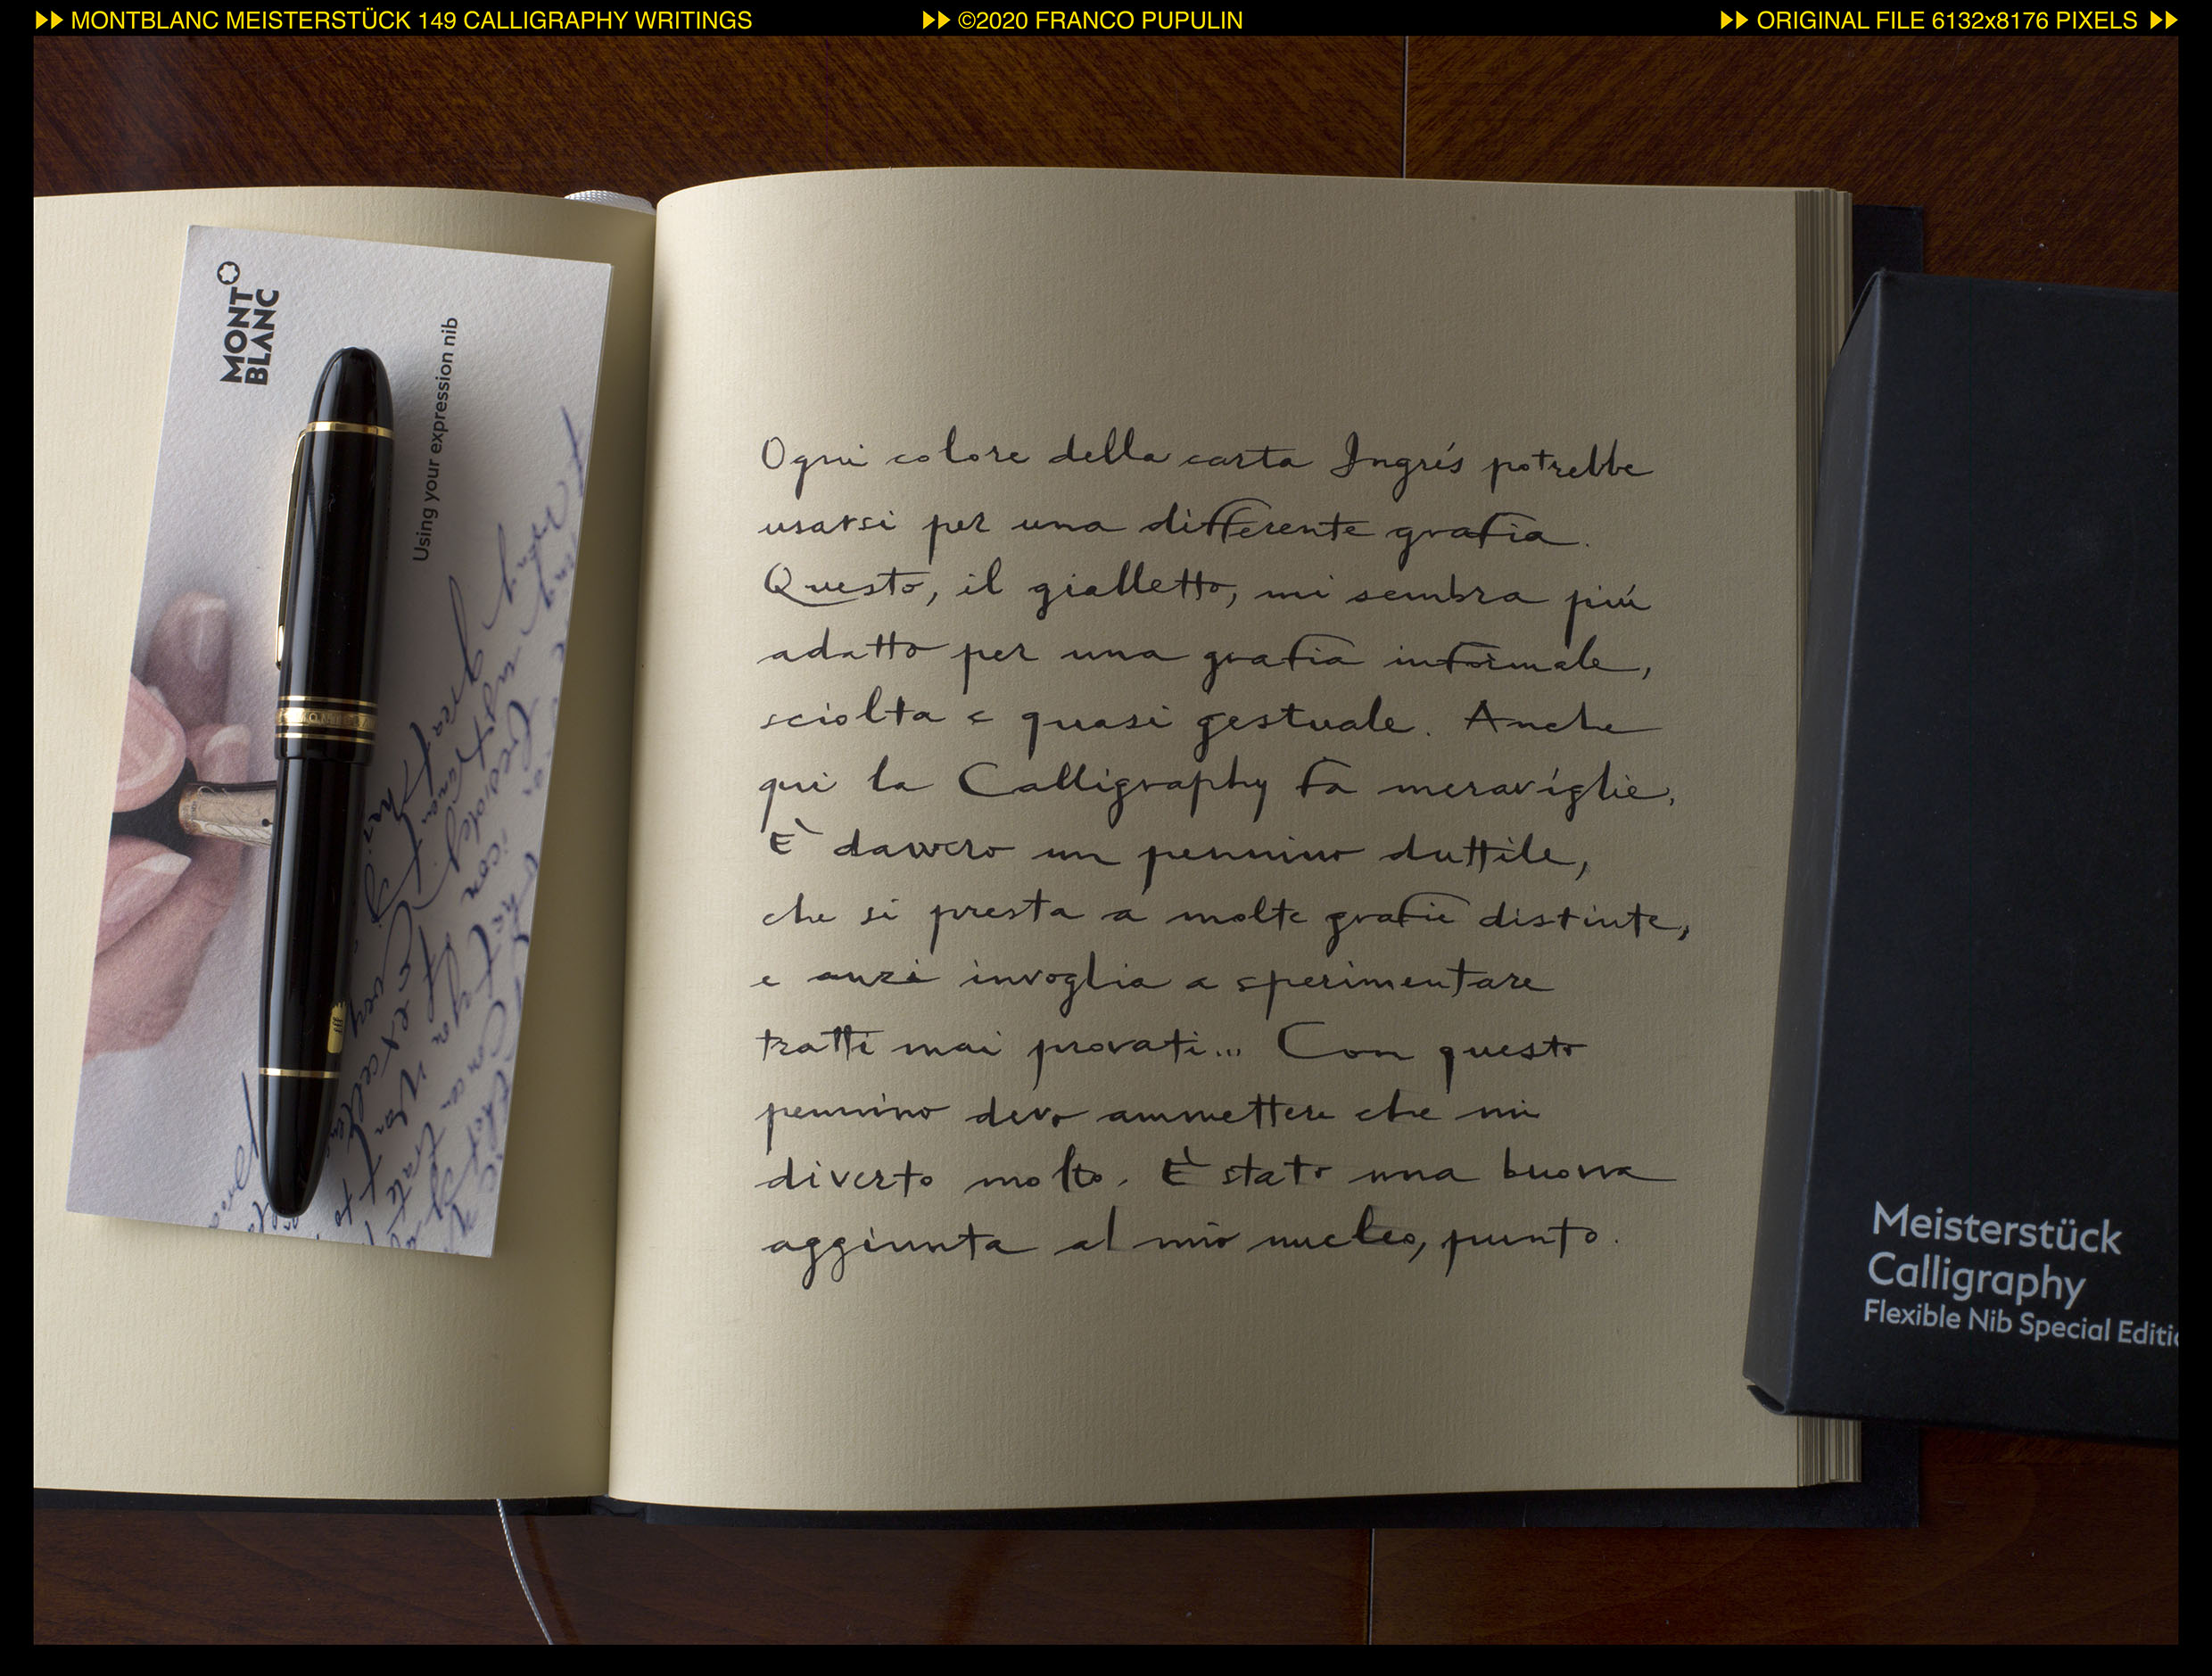 MONTBLANC MEISTERSTÜCK 149 CALLIGRAPHY WRITINGS
©2020 FRANCO PUPULIN
ORIGINAL FILE 6132x8176 PIXELS
MONT
BLANC
Using your expression nib
Ogni colore della carta Ingrés potrebbe
usarsi per una differente grafia.
Questo, il gialletto, mi sembra piú
adatto per una grafia informale,
sciolta e quasi gestuale. Anche
qui la Calligraphy fa meraviglie.
È davvero un pennino duttile,
che si presta a molte grafie distinte,
e anzi invoglia a sperimentare
tratti mai provati... Con questo
pennino devo ammettere che mi
diverto molto. È stata una buona
aggiunta al mio nucleo, punto.
Meisterstück
Calligraphy
Flexible Nib Special Editi